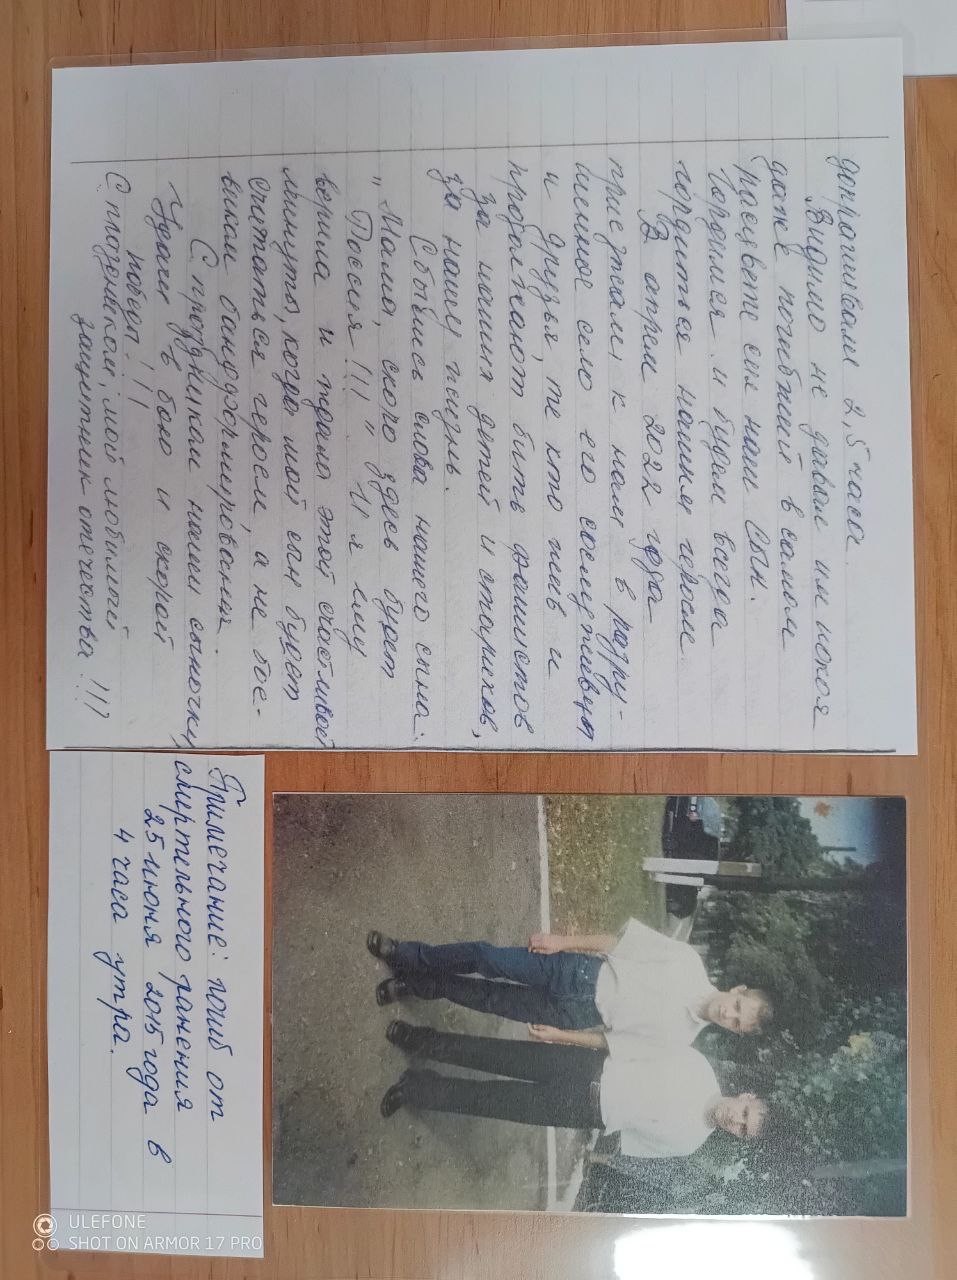 допрашивали 2,5 часа.
Видимо не давал им покоя
даже погибший в самом
расцвете сил наш сын.
Гордимся и будем всегда
гордиться нашим героем.
В апреле 2022 года
приезжали к нам в разру-
шенное село его сослуживцы
и друзья, те кто жив и
продолжают бить фашистов
за наших детей и стариков,
за нашу жизнь.
Сбылись слова нашего сына:
„Мама, скоро здесь будет
Россия!!!". И я ему
верила и ждала этой счастливой
минуты, когда мой сын будет
считаться героем, а не бое-
виком бандформирования.
С праздником наши сыночки,
Удачи в бою и скорой
победы!!!
С праздником, мой любимый
защитник отечества!!!
Примечание: погиб от
смертельного ранения
25 июня 2015 года в
4 часа утра.
ULEFONE
SHOT ON ARMOR 17 PRO